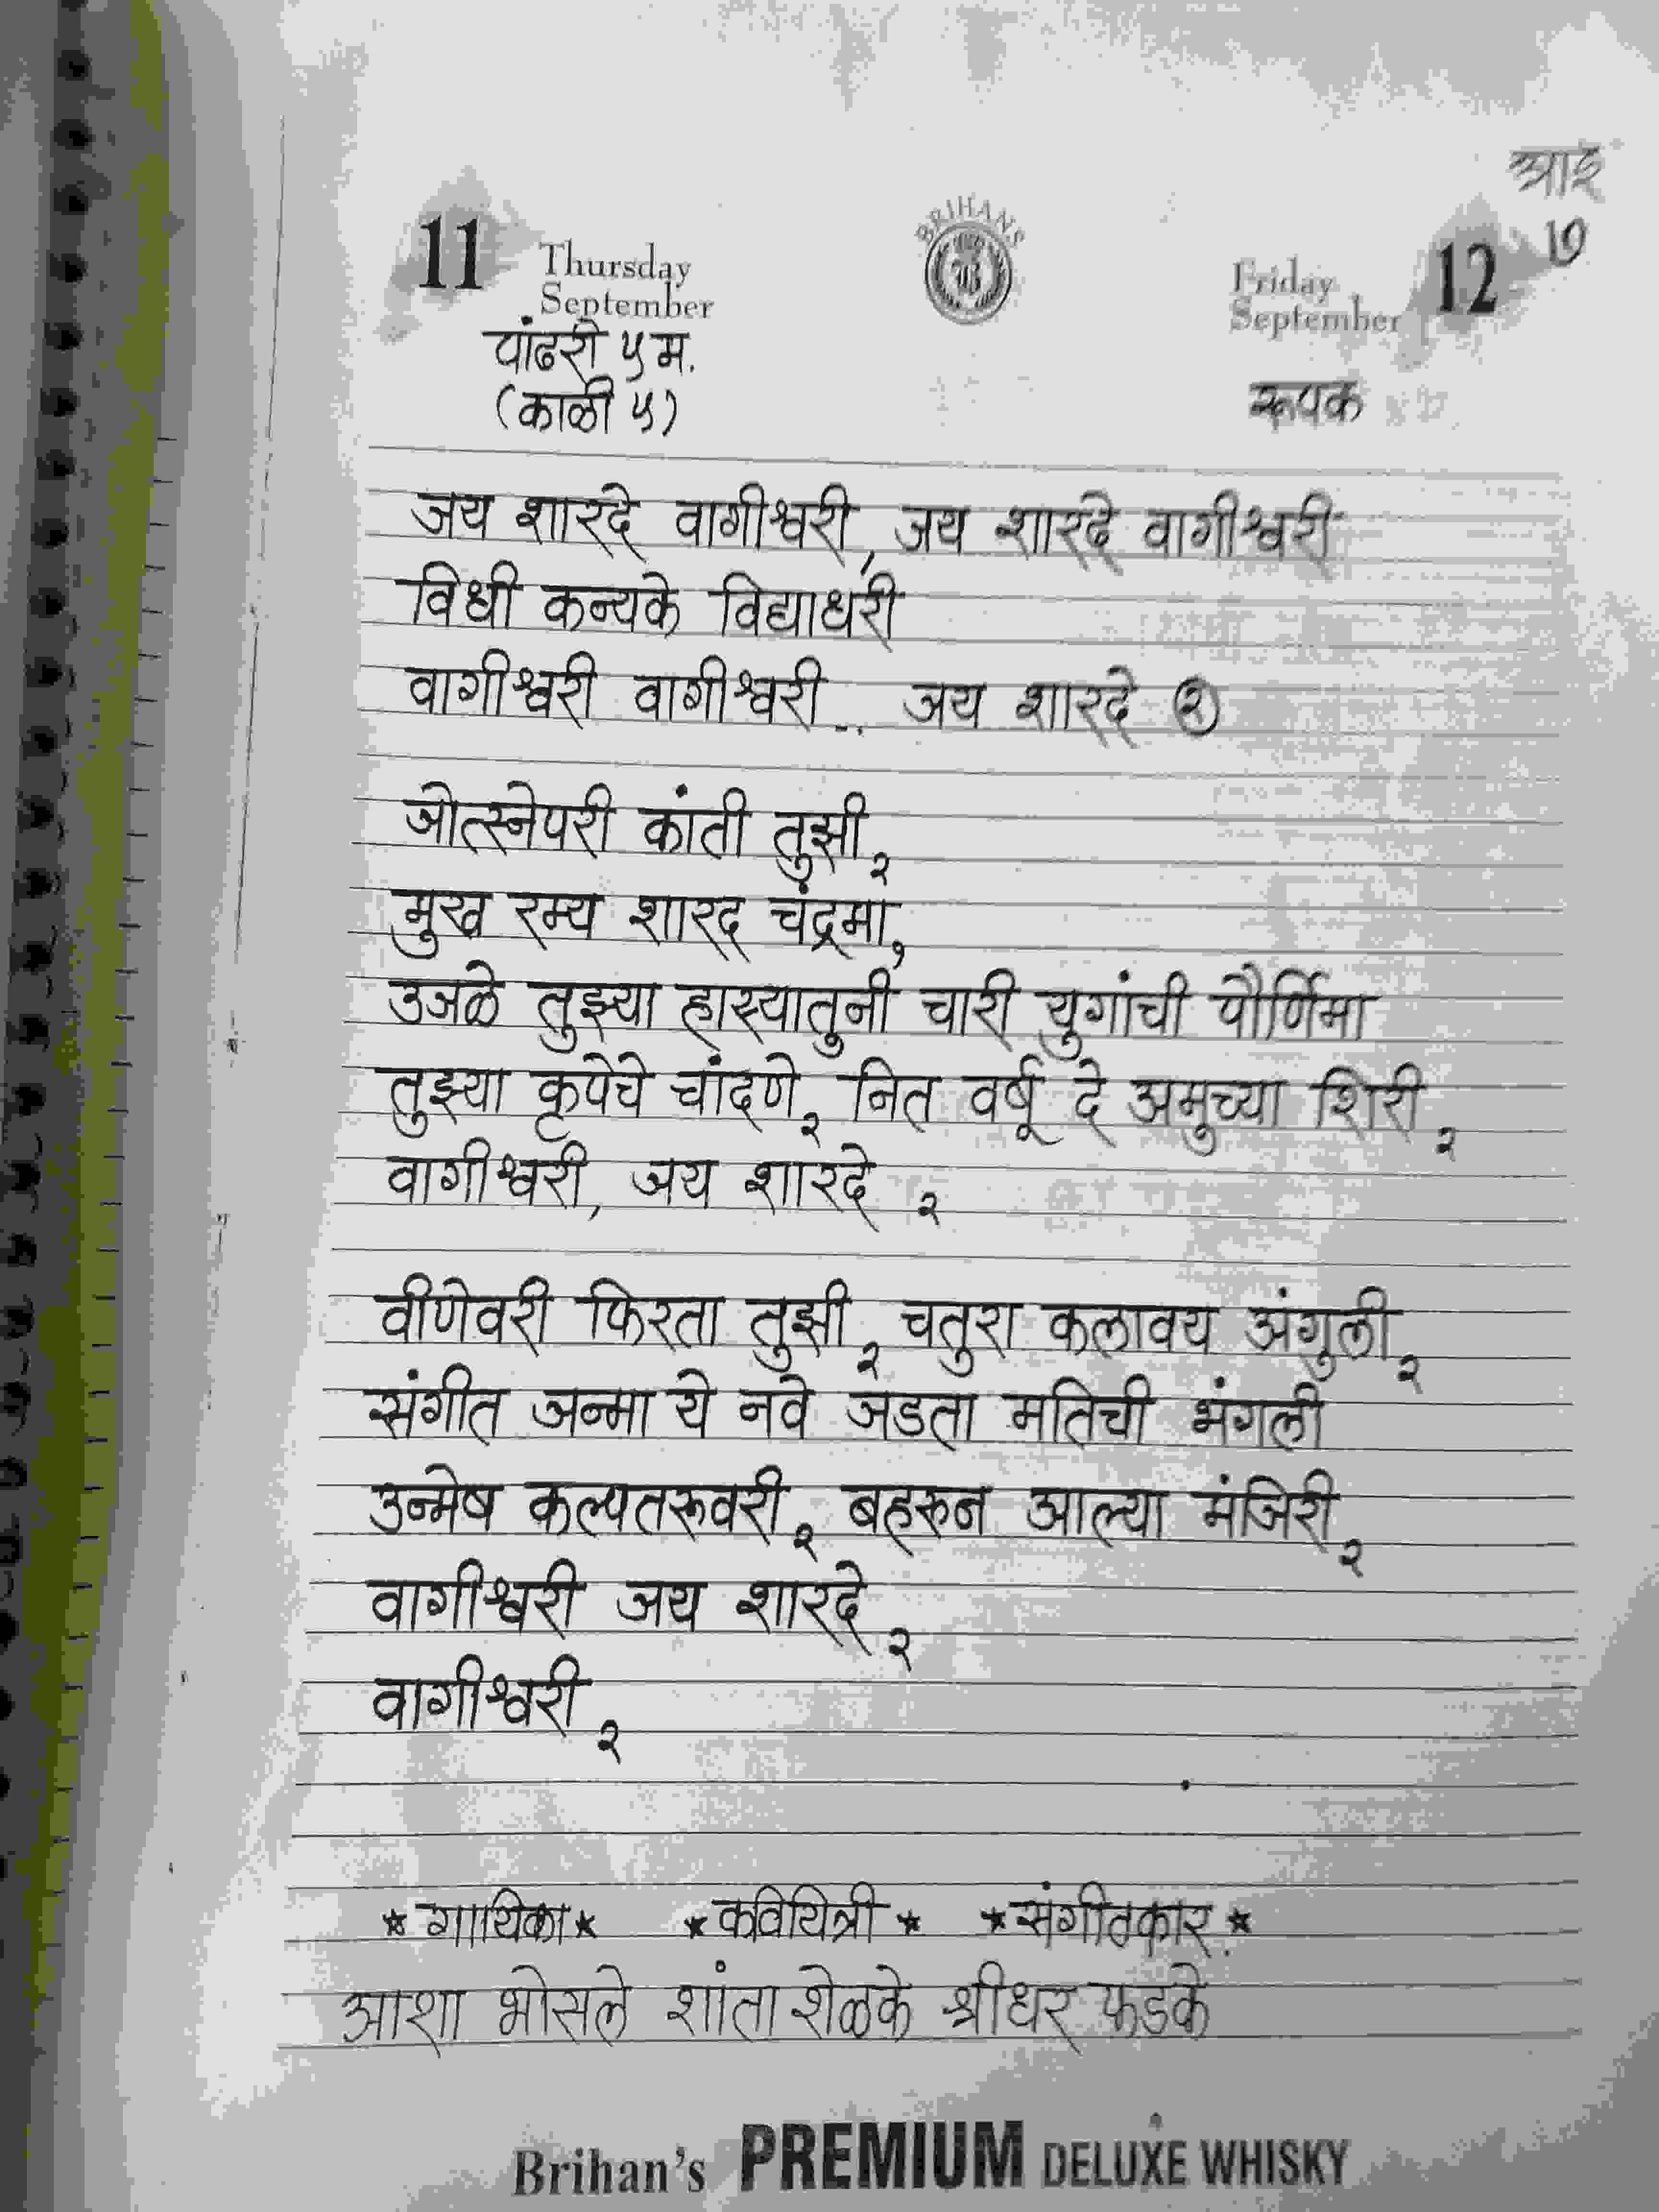 आई
१०
11 Thursday September
BRIHANS
Friday September 12
पांढरी ५ म.
(काळी ५)
रूपक
जय शारदे वागीश्वरी, जय शारदे वागीश्वरी
विधी कन्यके विद्याधरी
वागीश्वरी वागीश्वरी... जय शारदे २
जोत्स्नेपरी कांती तुझी २
मुख रम्य शारद चंद्रमा,
उजळे तुझ्या हास्यातुनी चारी युगांची पौर्णिमा
तुझ्या कृपेचे चांदणे २ नित वर्षू दे अमुच्या शिरी २
वागीश्वरी, जय शारदे २
वीणेवरी फिरता तुझी २ चतुरा कलावय अंगुली २
संगीत जन्मा ये नवे जडता मतिची भंगली
उन्मेष कल्पतरूवरी २ बहरुन आल्या मंजिरी २
वागीश्वरी जय शारदे २
वागीश्वरी २
*गायिका* *कवियित्री* *संगीतकार*
आशा भोसले शांता शेळके श्रीधर फडके
Brihan's PREMIUM DELUXE WHISKY